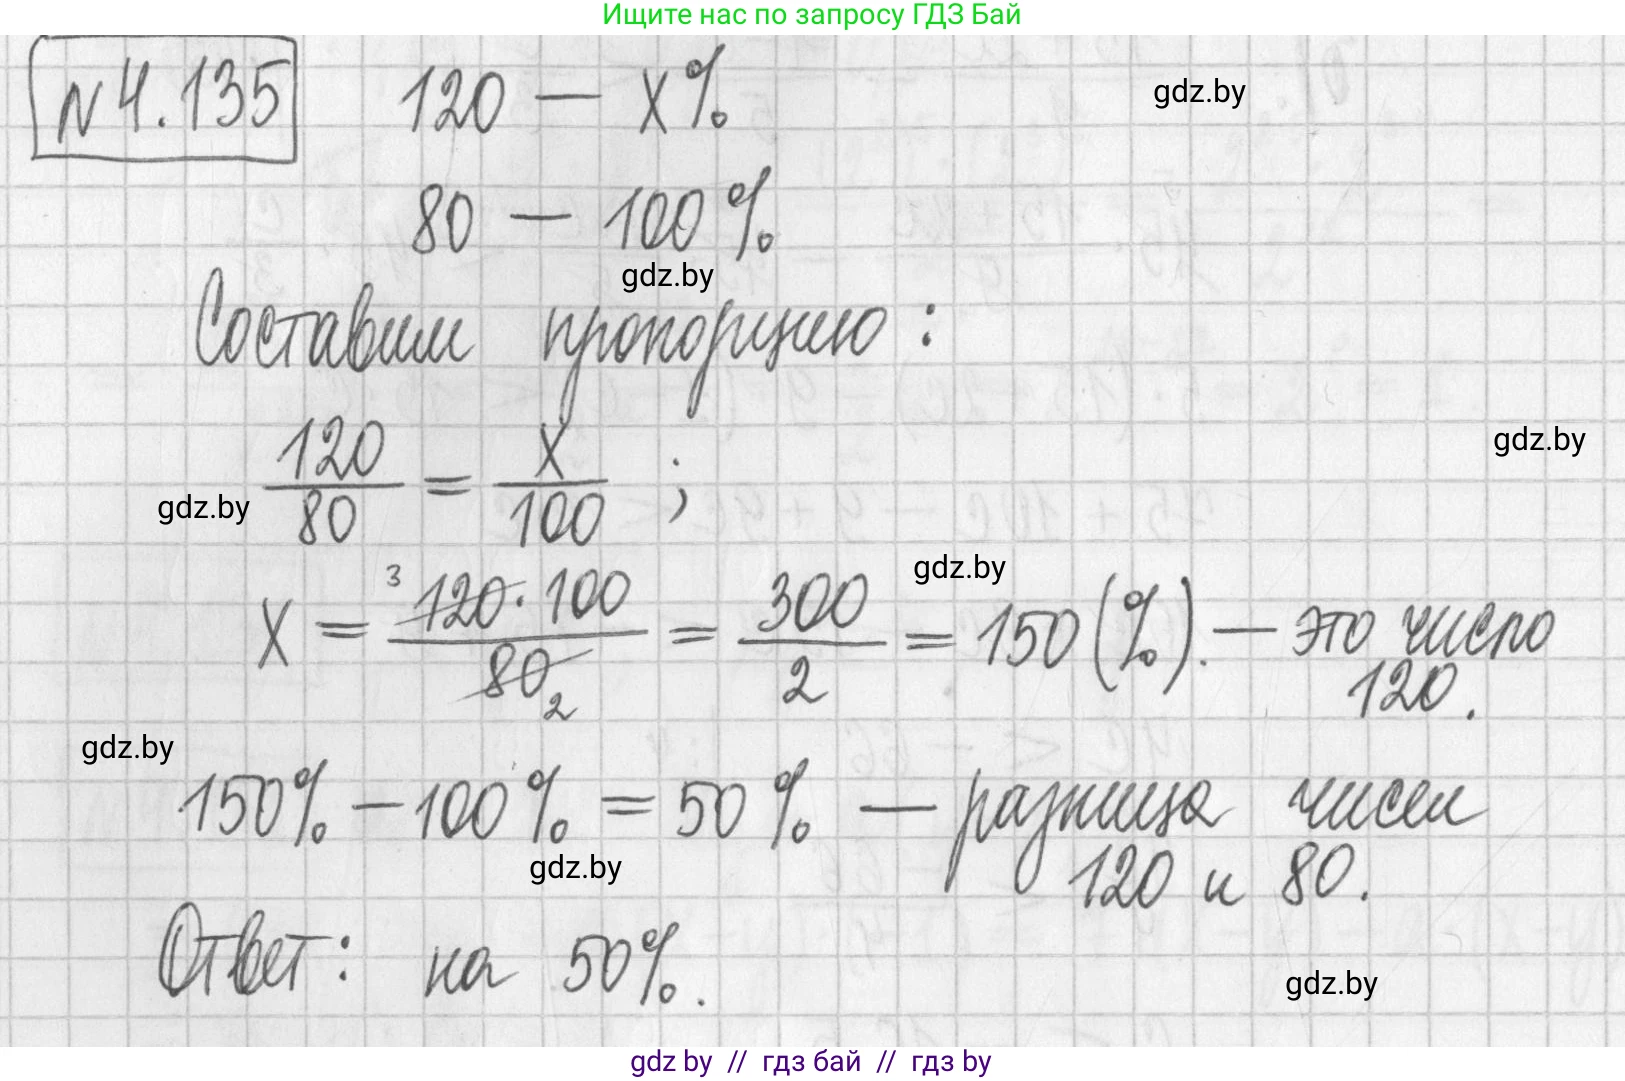 Ищите нас по запросу ГДЗ Бай
N 4.135 120 — x%
gdz.by
80 — 100%
gdz.by
Составим пропорцию:
120/80 = x/100 ;
gdz.by
gdz.by
gdz.by
x = 3 120·100 / 80 2 = 300/2 = 150(%). — это число
120.
gdz.by
150% — 100% = 50% — разница чисел
120 и 80.
gdz.by
Ответ: на 50%.
gdz.by
gdz by // гдз бай // гдз by